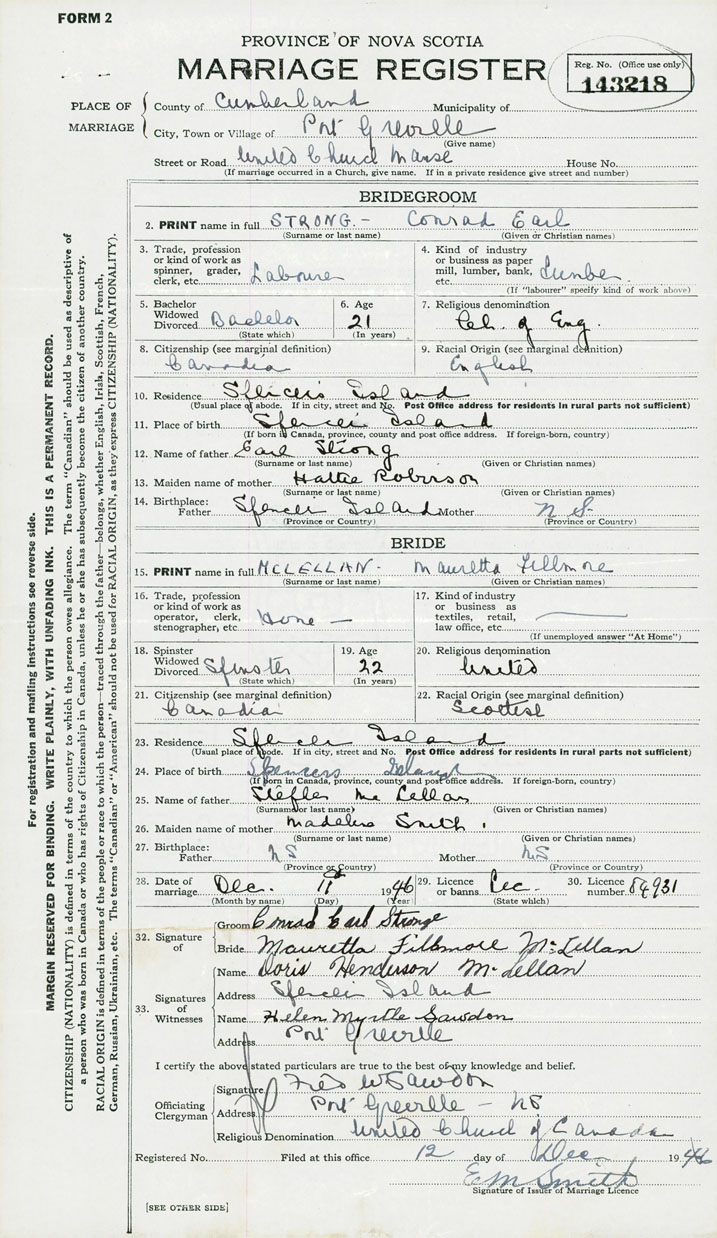 FORM 2
PROVINCE OF NOVA SCOTIA
MARRIAGE REGISTER
Reg. No. (Office use only)
143218
PLACE OF MARRIAGE
County of Cumberland Municipality of
City, Town or Village of Port Greville
(Give name)
Street or Road United Church Manse House No.
(If marriage occurred in a Church, give name. If in a private residence give street and number)
BRIDEGROOM
2. PRINT name in full STRONG.- Conrad Earl
(Surname or last name) (Given or Christian names)
3. Trade, profession or kind of work as spinner, grader, clerk, etc. Labourer
4. Kind of industry or business as paper mill, lumber, bank, etc. Lumber
(If "labourer" specify kind of work above)
5. Bachelor Widowed Divorced Bachelor
(State which)
6. Age 21
(In years)
7. Religious denomination
Ch. of Eng.
8. Citizenship (see marginal definition)
Canadia
9. Racial Origin (see marginal definition)
English
10. Residence Spencers Island
(Usual place of abode. If in city, street and No. Post Office address for residents in rural parts not sufficient)
11. Place of birth Spencer Island
(If born in Canada, province, county and post office address. If foreign-born, country)
12. Name of father Earl Strong
(Surname or last name) (Given or Christian names)
13. Maiden name of mother Hattie Robinson
(Surname or last name) (Given or Christian names)
14. Birthplace: Father Spencer Island Mother N S
(Province or Country) (Province or Country)
BRIDE
15. PRINT name in full MCLELLAN- Mauretta Fillmore
(Surname or last name) (Given or Christian names)
16. Trade, profession or kind of work as operator, clerk, stenographer, etc Home -
17. Kind of industry or business as textiles, retail, law office, etc.
(If unemployed answer "At Home")
18. Spinster Widowed Divorced Spinster
(State which)
19. Age 22
(In years)
20. Religious denomination
United
21. Citizenship (see marginal definition)
Canadia
22. Racial Origin (see marginal definition)
Scottish
23. Residence Spencer Island
(Usual place of abode. If in city, street and No. Post Office address for residents in rural parts not sufficient)
24. Place of birth Spencers Island
(If born in Canada, province, county and post office address. If foreign-born, country)
25. Name of father Mc Lellan
(Surname or last name) (Given or Christian names)
26. Maiden name of mother Madeline Smith
(Surname or last name) (Given or Christian names)
27. Birthplace: Father N S Mother N.S.
(Province or Country) (Province or Country)
28. Date of marriage Dec. 11 1946
(Month by name) (Day) (Year)
29. Licence or banns Lec.
(State which)
30. Licence number 84931
32. Signature of
Groom Conrad Earl Stronge
Bride Mauretta Fillmore McLellan
33. Signatures of Witnesses
Name Doris Henderson McLellan
Address Spencer Island
Name Helen Myrtle Sawdon
Address Port Greville
I certify the above stated particulars are true to the best of my knowledge and belief.
Officiating Clergyman
Signature Fred W Sawdon
Address Port Greville - NS
Religious Denomination United Church of Canada
Registered No. Filed at this office 12 day of Dec. 1946
E M Smith
Signature of Issuer of Marriage Licence
[SEE OTHER SIDE]
For registration and mailing instructions see reverse side.
MARGIN RESERVED FOR BINDING. WRITE PLAINLY, WITH UNFADING INK. THIS IS A PERMANENT RECORD.
CITIZENSHIP (NATIONALITY) is defined in terms of the country to which the person owes allegiance. The term "Canadian" should be used as descriptive of
a person who was born in Canada or who has rights of Citizenship in Canada, unless he or she has subsequently become the citizen of another country.
RACIAL ORIGIN is defined in terms of the people or race to which the person—traced through the father—belongs, whether English, Irish, Scottish, French,
German, Russian, Ukrainian, etc. The terms "Canadian" or "American" should not be used for RACIAL ORIGIN, as they express CITIZENSHIP (NATIONALITY).